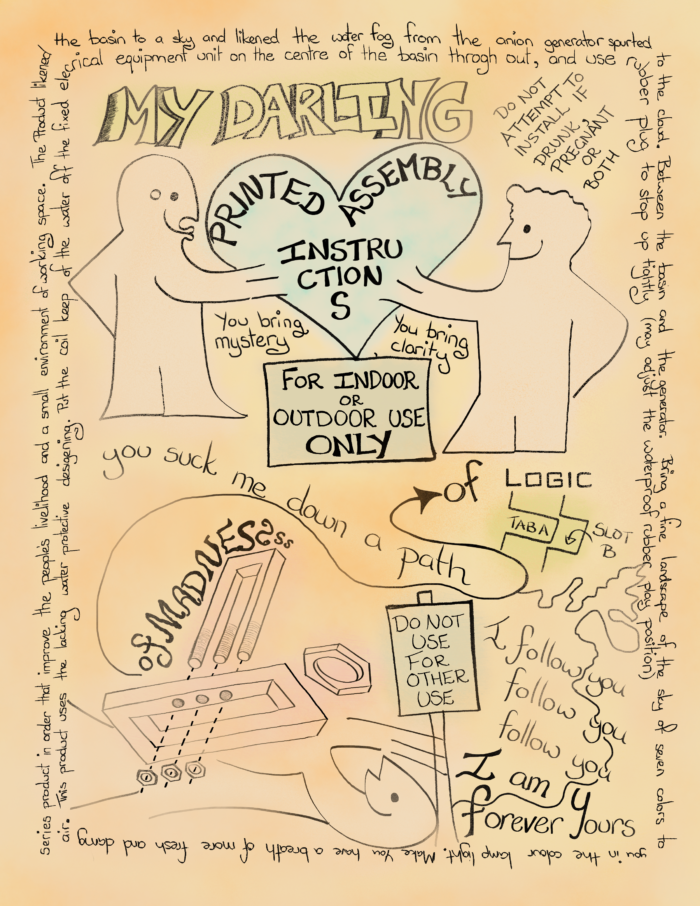 the basin to a sky and likened the water fog from the anion generator spurted
rical equipment unit on the centre of the basin throgh out, and use rubber plug to stop up tightly (may adjust the waterproof rubber play position)
to the cloud. Between the basin and the generator. Bring a fine landscape of the sky of seven colors to
you in the colour lamp light. Make You have a breath of more fresh and damg
air. This product uses the lacking water protective designing. Put the coil keep of the water off the fixed elec
series product in order that improve the people's livelihood and a small environment of working space. The Product likened
MY DARLING
DO NOT
ATTEMPT TO
INSTALL IF
DRUNK,
PREGNANT
OR
BOTH
PRINTED ASSEMBLY
INSTRU
CTION
S
You bring
mystery
You bring
clarity
FOR INDOOR
OR
OUTDOOR USE
ONLY
you suck me down a path
of LOGIC
TAB A
SLOT
B
of MADNESSss
DO NOT
USE
FOR
OTHER
USE
I follow you
follow you
follow you
I am
forever Yours